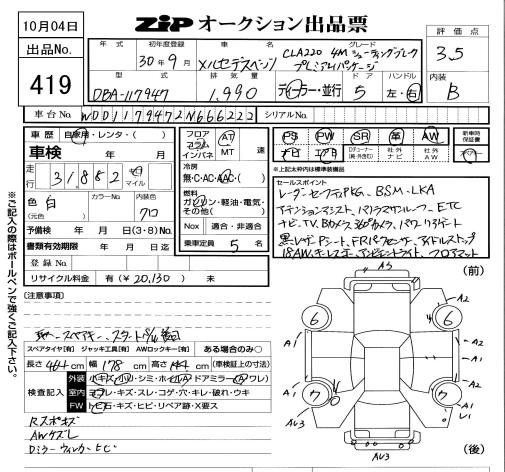 10月04日
ZiP オークション出品票
出品No.
419
年式 初年度登録 車名 グレード
30年9月 メルセデスベンツ CLA220 4M シューティングブレーク
プレミアムパッケージ
型式 排気量 ドア ハンドル
DBA-117947 1,990 ディーラー・並行 5 左・右
評価点
3.5
内装
B
車台No. WDD1179472N666222 シリアルNo.
車歴 自家用・レンタ・( )
車検 年 月
走行 31,882 キロ マイル
色 白 カラーNo. 内装色 クロ
(元色)
予備検 年 月 日(3・8)No.
書類有効期限 年 月 日迄
登録No.
リサイクル料金 有(¥20,130) 未
フロア コラム インパネ AT MT 速
冷房
無・C・AC・AAC・( )
燃料
ガソリン・軽油・電気・その他( )
Nox 適合・非適合
乗車定員 5 名
PS PW SR 革 AW
ナビ エアB Dチューナー(純・外含む) 社外ナビ 社外AW
新車時保証書
※上記太枠内は標準装備品
セールスポイント
レーダーセーフティPKG、BSM・LKA
ナビ、TV、Bカメラ、360°カメラ、パワーリアゲート
黒レザーPシート、FRパワーシーター、アイドルストップ
18AW、キーレスゴー、アンビエントライト、フロアマット
※ご記入の際はボールペンで強くご記入下さい。
[注意事項]
スペアタイヤ[有] ジャッキ工具[有] AWロックキー[有] ある場合のみ○
長さ 464 cm 幅 178 cm 高さ 144 cm (車検証上の寸法)
検査記入
外装 小キズ・小凹・シミ・ホイールA ドアミラー(A ワレ)
室内 ヨゴレ・キズ・スレ・コゲ・穴・キレ・破れ・ウキ
FW トビ石・キズ・ヒビ・リペア跡・X要ス
Rスポキズ
AWケズレ
Dミラーウィンカーヒビ
(前)
A3
6 6
A1
A2
A1
A1
A2
A1
ワ ワ
A1
U1
AU3
AU3
(後)